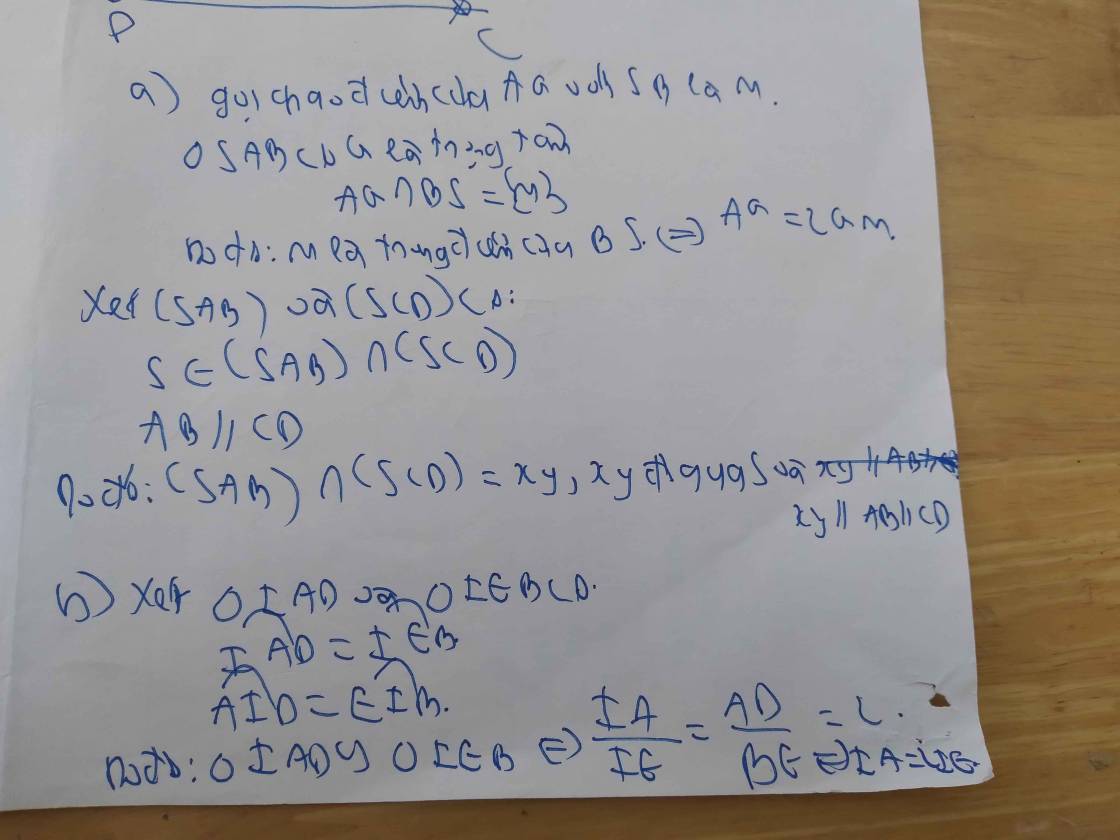 D
C
a) gọi giao điểm của AG với SB là M.
Δ SAB có G là trọng tâm
AG ∩ BS = {M}
Do đó: M là trung điểm của BS. ⇒ AG = 2GM.
Xét (SAB) và (SCD) có:
S ∈ (SAB) ∩ (SCD)
AB // CD
Do đó: (SAB) ∩ (SCD) = xy, xy đi qua S và
xy // AB // CD
b) Xét Δ IAD và Δ IEB có.
IAD = IEB.
AID = EIB.
Do đó: Δ IAD ∽ Δ IEB ⇒ IA/IE = AD/BE = 2. ⇒ IA = 2IE.